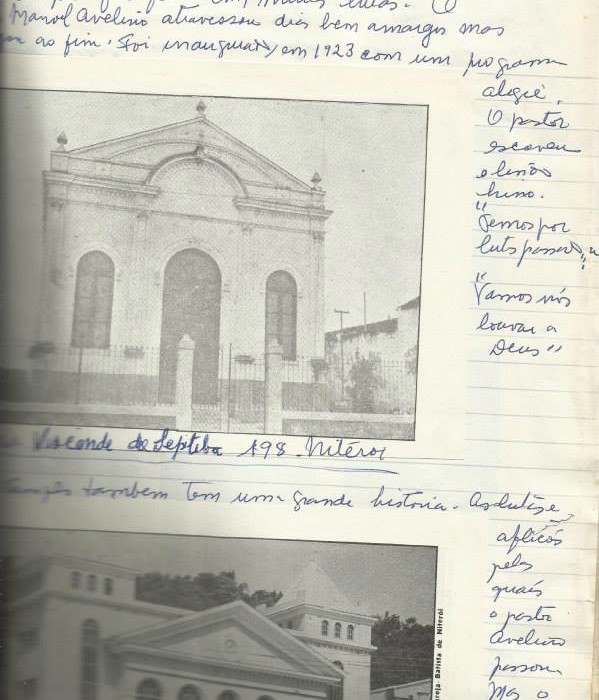 Manoel Avelino atravessou dias bem amargos mas
ao fim. Foi inaugurado em 1923 com um programa
alegre.
O pastor
escreveu
o lindo
hino.
"Temos por
lutas passado"
"Vamos nós
louvar a
Deus"
Visconde de Sepitiba 198 - Niterói
também tem uma grande historia. As lutas e
aflicões
pelas
quais
o pastor
Avelino
passou.
Mas o
Igreja Batista de Niterói